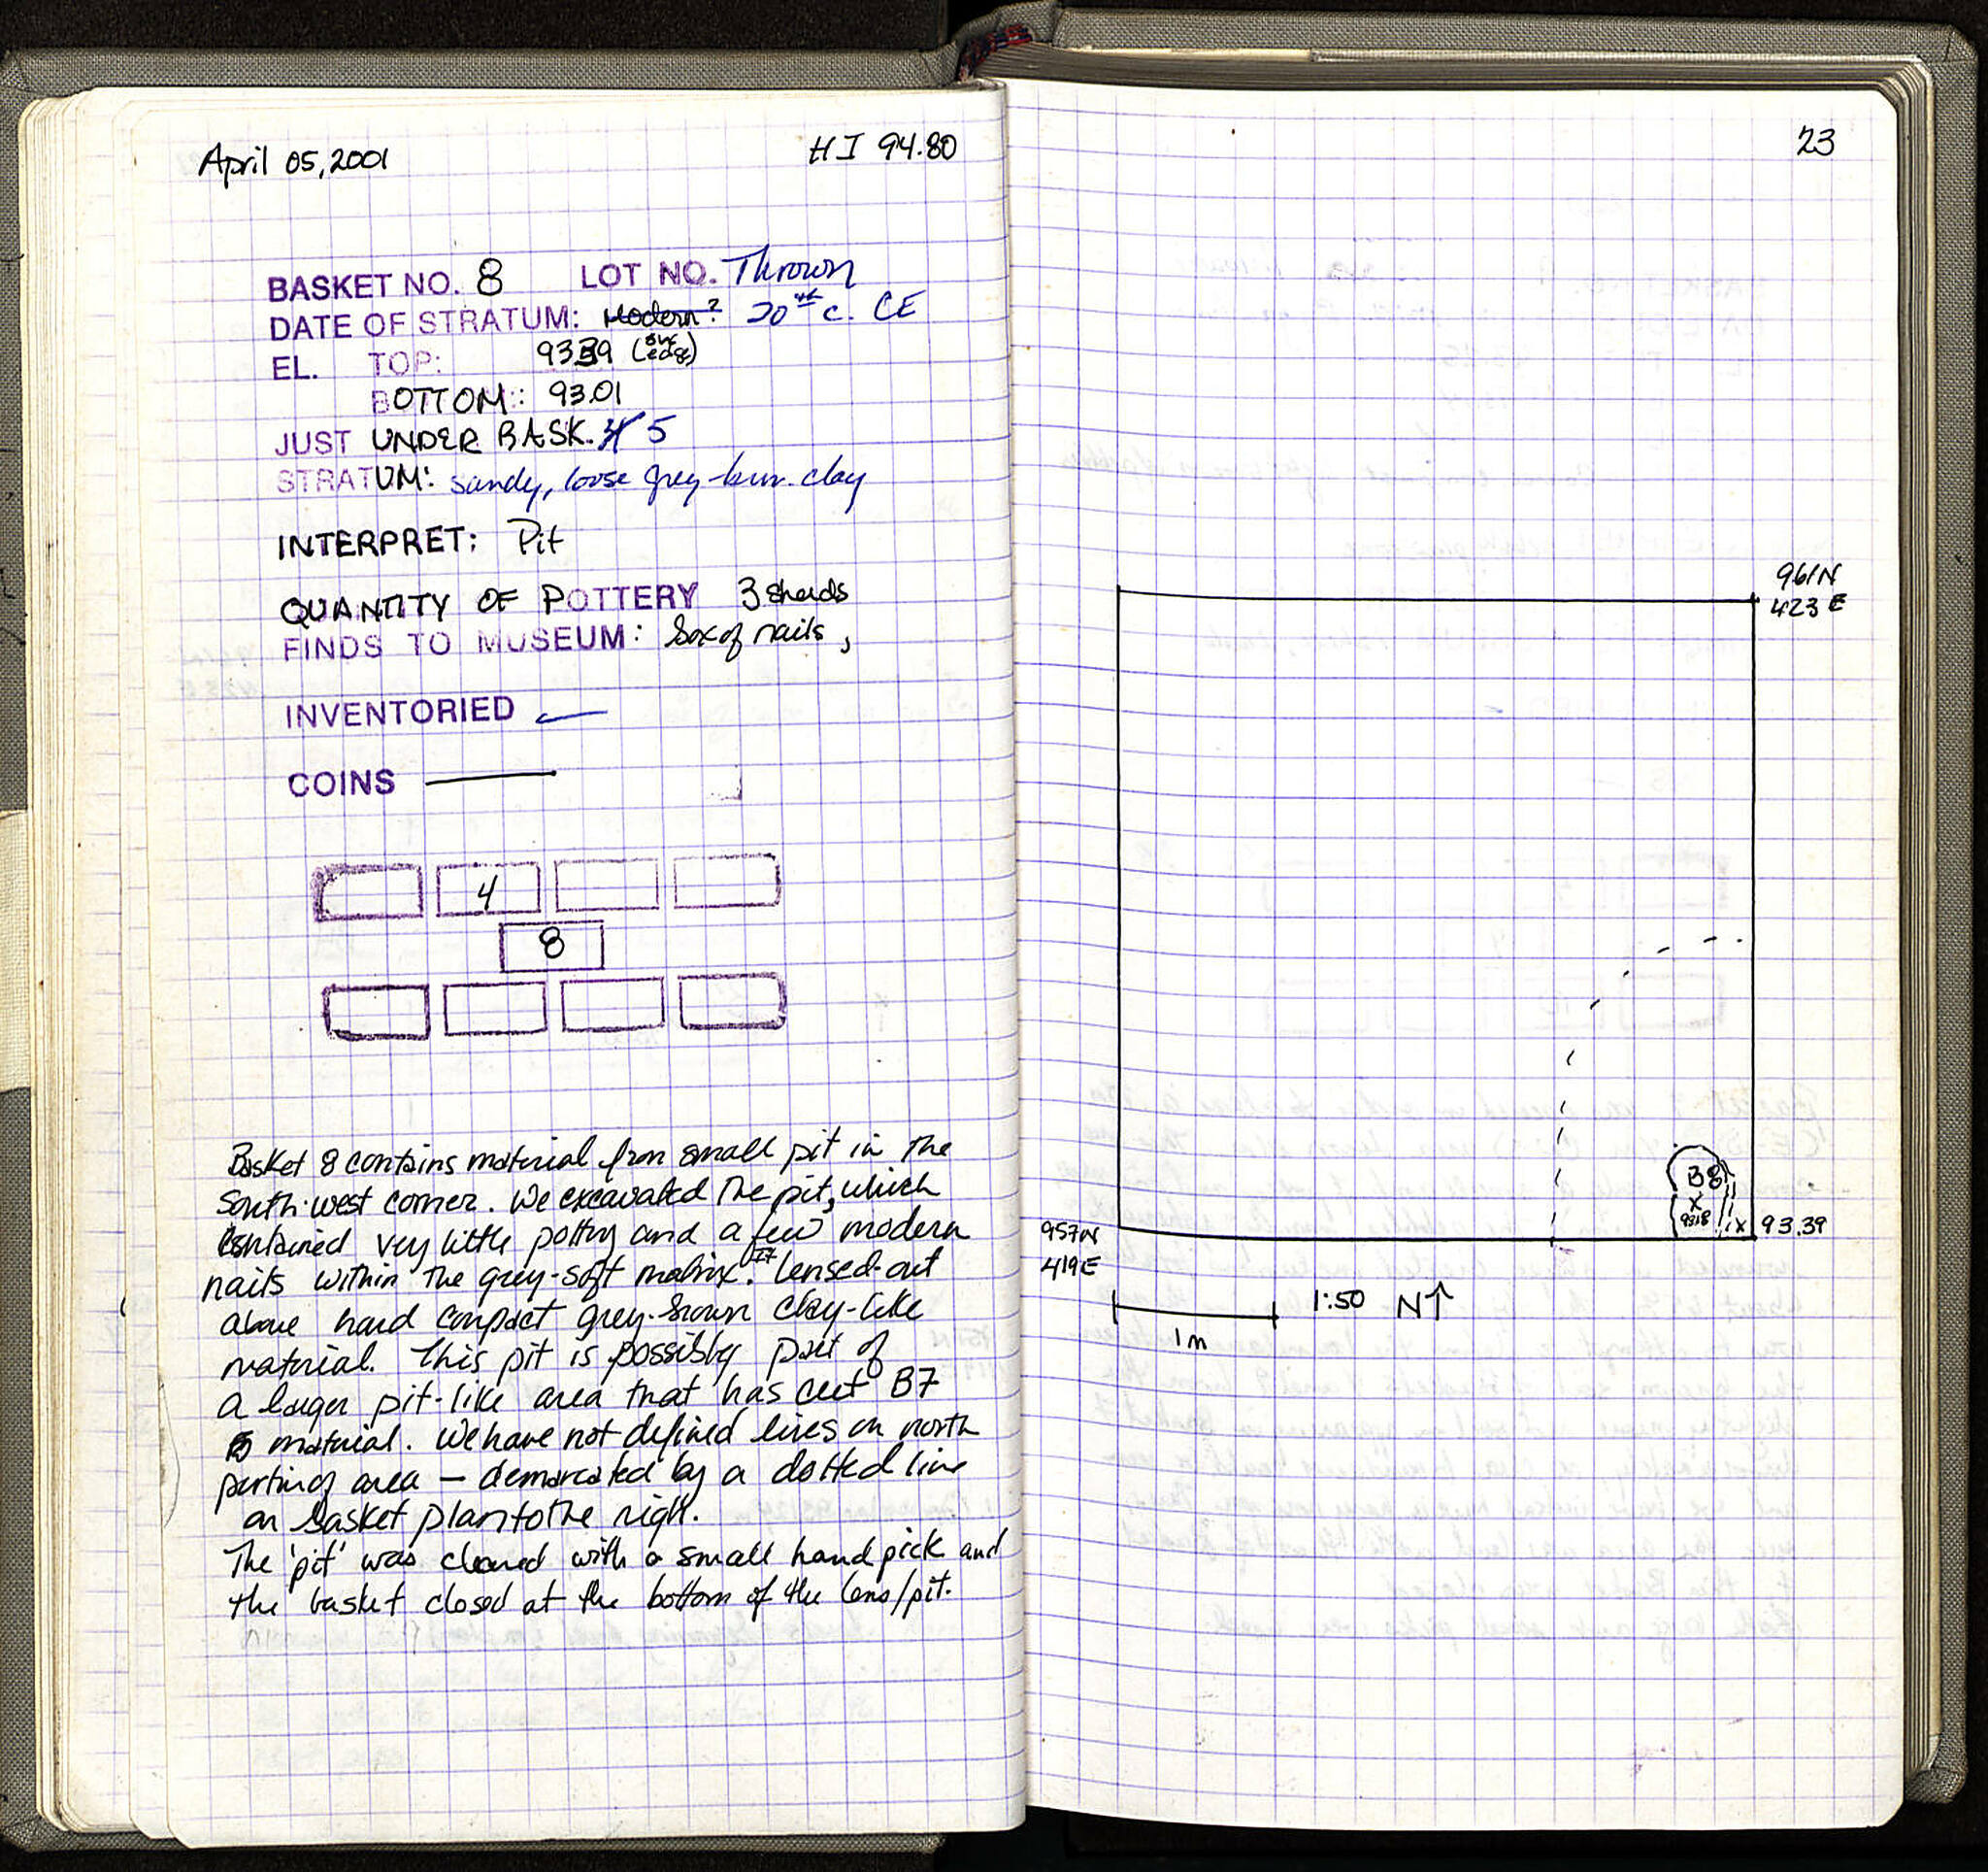 April 05, 2001
HI 94.80
BASKET NO. 8 LOT NO. Thrown
DATE OF STRATUM: Modern? 20th c. CE
EL. TOP: 93.39 (SW edge)
BOTTOM: 93.01
JUST UNDER BASK. 4 5
STRATUM: sandy, loose grey-brw. clay
INTERPRET: Pit
QUANTITY OF POTTERY 3 sherds
FINDS TO MUSEUM: box of nails,
INVENTORIED —
COINS —
4
8
Basket 8 contains material from small pit in the
south-west corner. We excavated the pit, which
contained very little pottery and a few modern
nails within the grey-soft matrix. It lensed-out
above hard compact grey-brown clay-like
material. This pit is possibly part of
a larger pit-like area that has cut B7
material. We have not defined lines on north
part of area — demarcated by a dotted line
on basket plan to the right.
The 'pit' was cleared with a small hand pick and
the basket closed at the bottom of the lens/pit.
23
961N
423 E
B8
X
93.18
X 93.39
957N
419E
1:50 N↑
1m